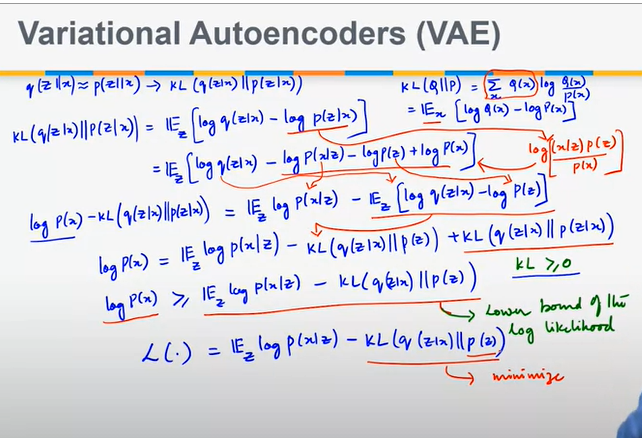 Variational Autoencoders (VAE)
q(z|x) ≈ p(z|x) → KL(q(z|x) || p(z|x))
KL(Q||P) = Σ_x Q(x) log Q(x)/P(x)
= 𝔼_x [log Q(x) - log P(x)]
KL(q(z|x) || p(z|x)) = 𝔼_z [log q(z|x) - log p(z|x)]
= 𝔼_z [log q(z|x) - log p(x|z) - log p(z) + log P(x)]
log (x|z) p(z) / p(x)
log P(x) - KL(q(z|x) || p(z|x)) = 𝔼_z log P(x|z) - 𝔼_z [log q(z|x) - log P(z)]
log P(x) = 𝔼_z log p(x|z) - KL(q(z|x) || p(z)) + KL(q(z|x) || p(z|x))
KL ≥ 0
log P(x) ≥ 𝔼_z log p(x|z) - KL(q(z|x) || p(z))
Lower bound of the
log likelihood
L(.) = 𝔼_z log p(x|z) - KL(q(z|x) || p(z))
minimize